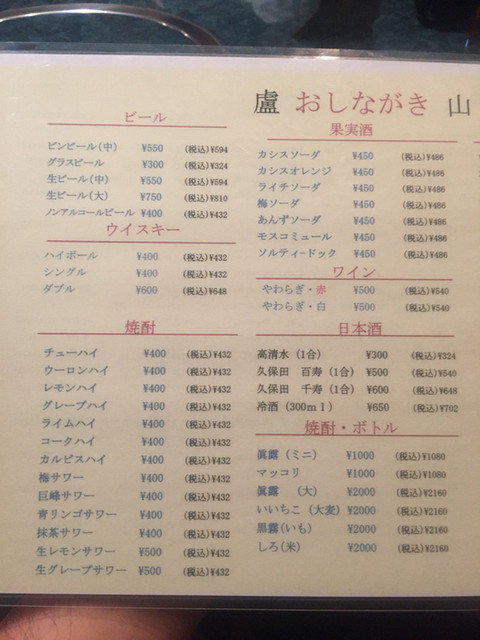 盧 おしながき 山
ビール
ビンビール(中) ¥550 (税込)¥594
グラスビール ¥300 (税込)¥324
生ビール(中) ¥550 (税込)¥594
生ビール(大) ¥750 (税込)¥810
ノンアルコールビール ¥400 (税込)¥432
ウイスキー
ハイボール ¥400 (税込)¥432
シングル ¥400 (税込)¥432
ダブル ¥600 (税込)¥648
焼酎
チューハイ ¥400 (税込)¥432
ウーロンハイ ¥400 (税込)¥432
レモンハイ ¥400 (税込)¥432
グレープハイ ¥400 (税込)¥432
ライムハイ ¥400 (税込)¥432
コークハイ ¥400 (税込)¥432
カルピスハイ ¥400 (税込)¥432
梅サワー ¥400 (税込)¥432
巨峰サワー ¥400 (税込)¥432
青リンゴサワー ¥400 (税込)¥432
抹茶サワー ¥400 (税込)¥432
生レモンサワー ¥500 (税込)¥432
生グレープサワー ¥500 (税込)¥432
果実酒
カシスソーダ ¥450 (税込)¥486
カシスオレンジ ¥450 (税込)¥486
ライチソーダ ¥450 (税込)¥486
梅ソーダ ¥450 (税込)¥486
あんずソーダ ¥450 (税込)¥486
モスコミュール ¥450 (税込)¥486
ソルティ-ドック ¥450 (税込)¥486
ワイン
やわらぎ・赤 ¥500 (税込)¥540
やわらぎ・白 ¥500 (税込)¥540
日本酒
高清水 (1合) ¥300 (税込)¥324
久保田 百寿 (1合) ¥500 (税込)¥540
久保田 千寿 (1合) ¥600 (税込)¥648
冷酒 (300ml) ¥650 (税込)¥702
焼酎・ボトル
眞露 (ミニ) ¥1000 (税込)¥1080
マッコリ ¥1000 (税込)¥1080
眞露 (大) ¥2000 (税込)¥2160
いいちこ (大麦) ¥2000 (税込)¥2160
黒霧(いも) ¥2000 (税込)¥2160
しろ(米) ¥2000 (税込)¥2160